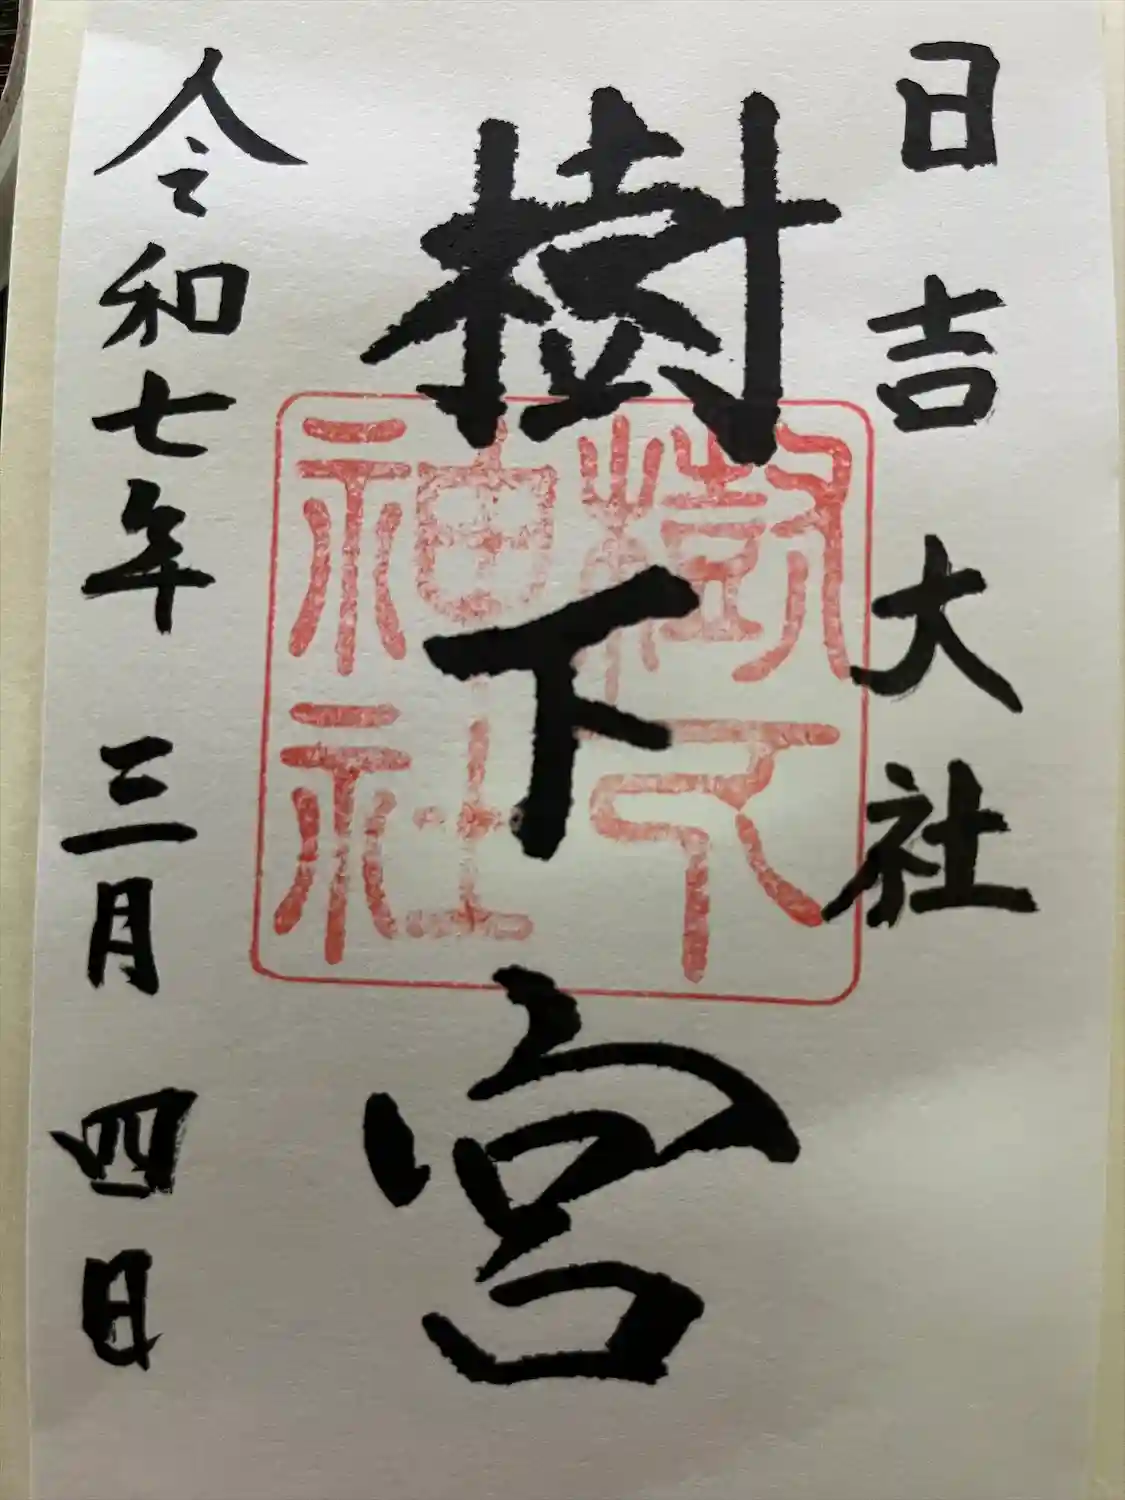 日吉大社
樹下宮
樹下
神社
令和七年三月四日